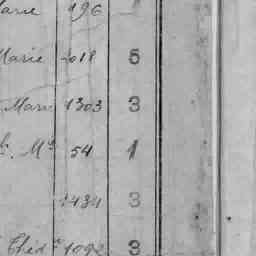 Marie 196
Marie 2018 5
Marie 1303 3
Mie 54 1
1434 3
Thed 1092 3